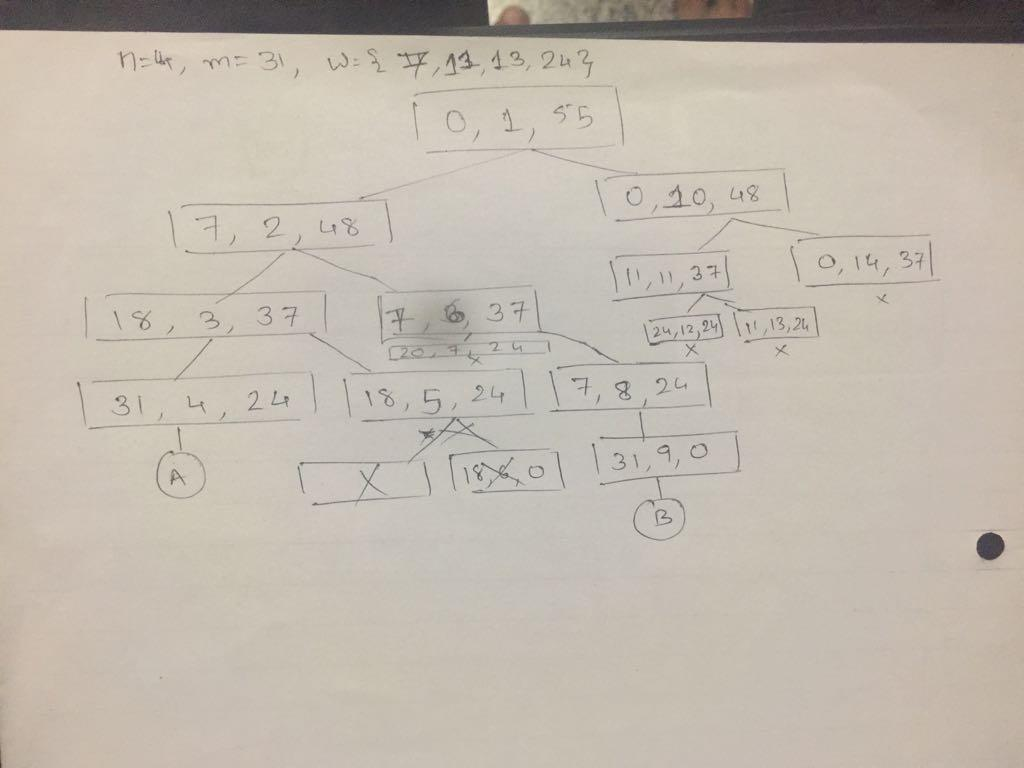 n=4, m=31, w={7,11,13,24}
0, 1, 55
7, 2, 48
0, 10, 48
18, 3, 37
7, 6, 37
11, 11, 37
0, 14, 37
x
20, 7, 24
x
24,12,24
x
11,13,24
x
31, 4, 24
18, 5, 24
7, 8, 24
A
X
18, 6, 0
31, 9, 0
B